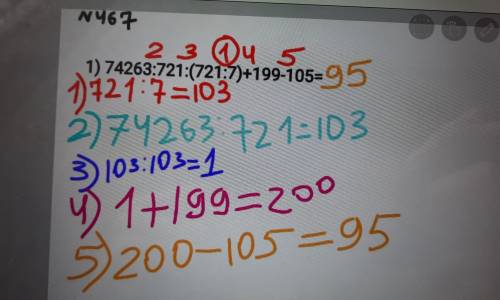 №467
2 3 1 4 5
1) 74263:721:(721:7)+199-105=95
1) 721:7=103
2) 74263:721=103
3) 103:103=1
4) 1+199=200
5) 200-105=95